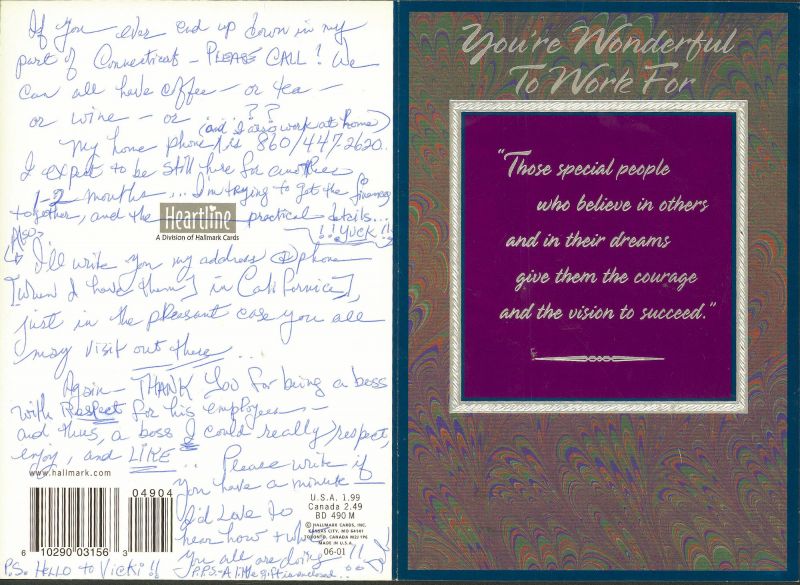 If you ever end up down in my
part of Connecticut - PLEASE CALL! We
can all have coffee - or tea -
or wine - or ??
(and I also work at home)
My home phone # is 860/447-2620.
I expect to be still here for another
1-2 months... I'm trying to get the finances
together, and the practical details...
!! YUCK !!
Heartline
A Division of Hallmark Cards
Also
I'll write you my address & phone
[when I have them] in California],
just in the pleasant case you all
may visit out there...
Again - THANK YOU for being a boss
with Respect for his employees -
and thus, a boss I could really respect,
enjoy, and LIKE...
Please write if
you have a minute
I'd Love to
hear how +
you all are doing!!!
P.S. HELLO to Vicki!!
P.P.S - A little gift is enclosed...
www.hallmark.com
04904
6 10290 03156 3
U.S.A. 1.99
Canada 2.49
BD 490 M
© HALLMARK CARDS, INC.
KANSAS CITY, MO 64141
TORONTO, CANADA M2J 1P6
MADE IN U.S.A.
06-01
You're Wonderful
To Work For
"Those special people
who believe in others
and in their dreams
give them the courage
and the vision to succeed."